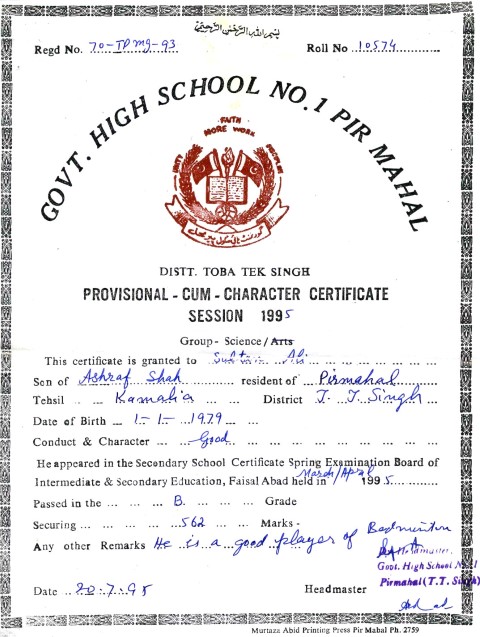 بسم اللہ الرحمٰن الرحیم
Regd No. 70-TPMg-93 Roll No 10574
GOVT. HIGH SCHOOL NO. 1 PIR MAHAL
FAITH
MORE WORK
UNITY
گورنمنٹ ہائی سکول پیر محل
DISTT. TOBA TEK SINGH
PROVISIONAL - CUM - CHARACTER CERTIFICATE
SESSION 1995
Group- Science/Arts
This certificate is granted to Sultan Ali
Son of Ashraf Shah resident of Pirmahal
Tehsil Kamalia District T. T. Singh
Date of Birth 1-1-1979
Conduct & Character Good
He appeared in the Secondary School Certificate Spring Examination Board of
Intermediate & Secondary Education, Faisal Abad held in March/April 1995
Passed in the B. Grade
Securing 562 Marks.
Any other Remarks He is a good player of Badminton
Headmaster,
Govt. High School No. 1
Pirmahal (T.T. Singh)
Date 20.7.95 Headmaster
Murtaza Abid Printing Press Pir Mahal Ph. 2759